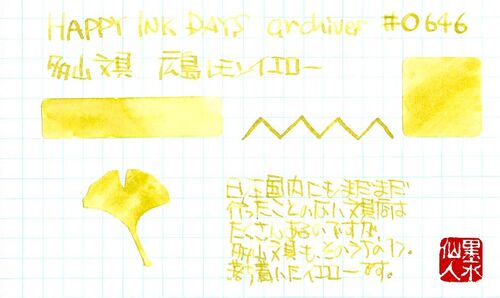 HAPPY INK DAYS archiver #0646
多山文具 広島レモンイエロー
日本国内にもまだまだ
行ったことのない文具店は
たくさんあるのですが、
多山文具も、そのうちの1つ。
落ち着いたイエローです。
墨水
仙人